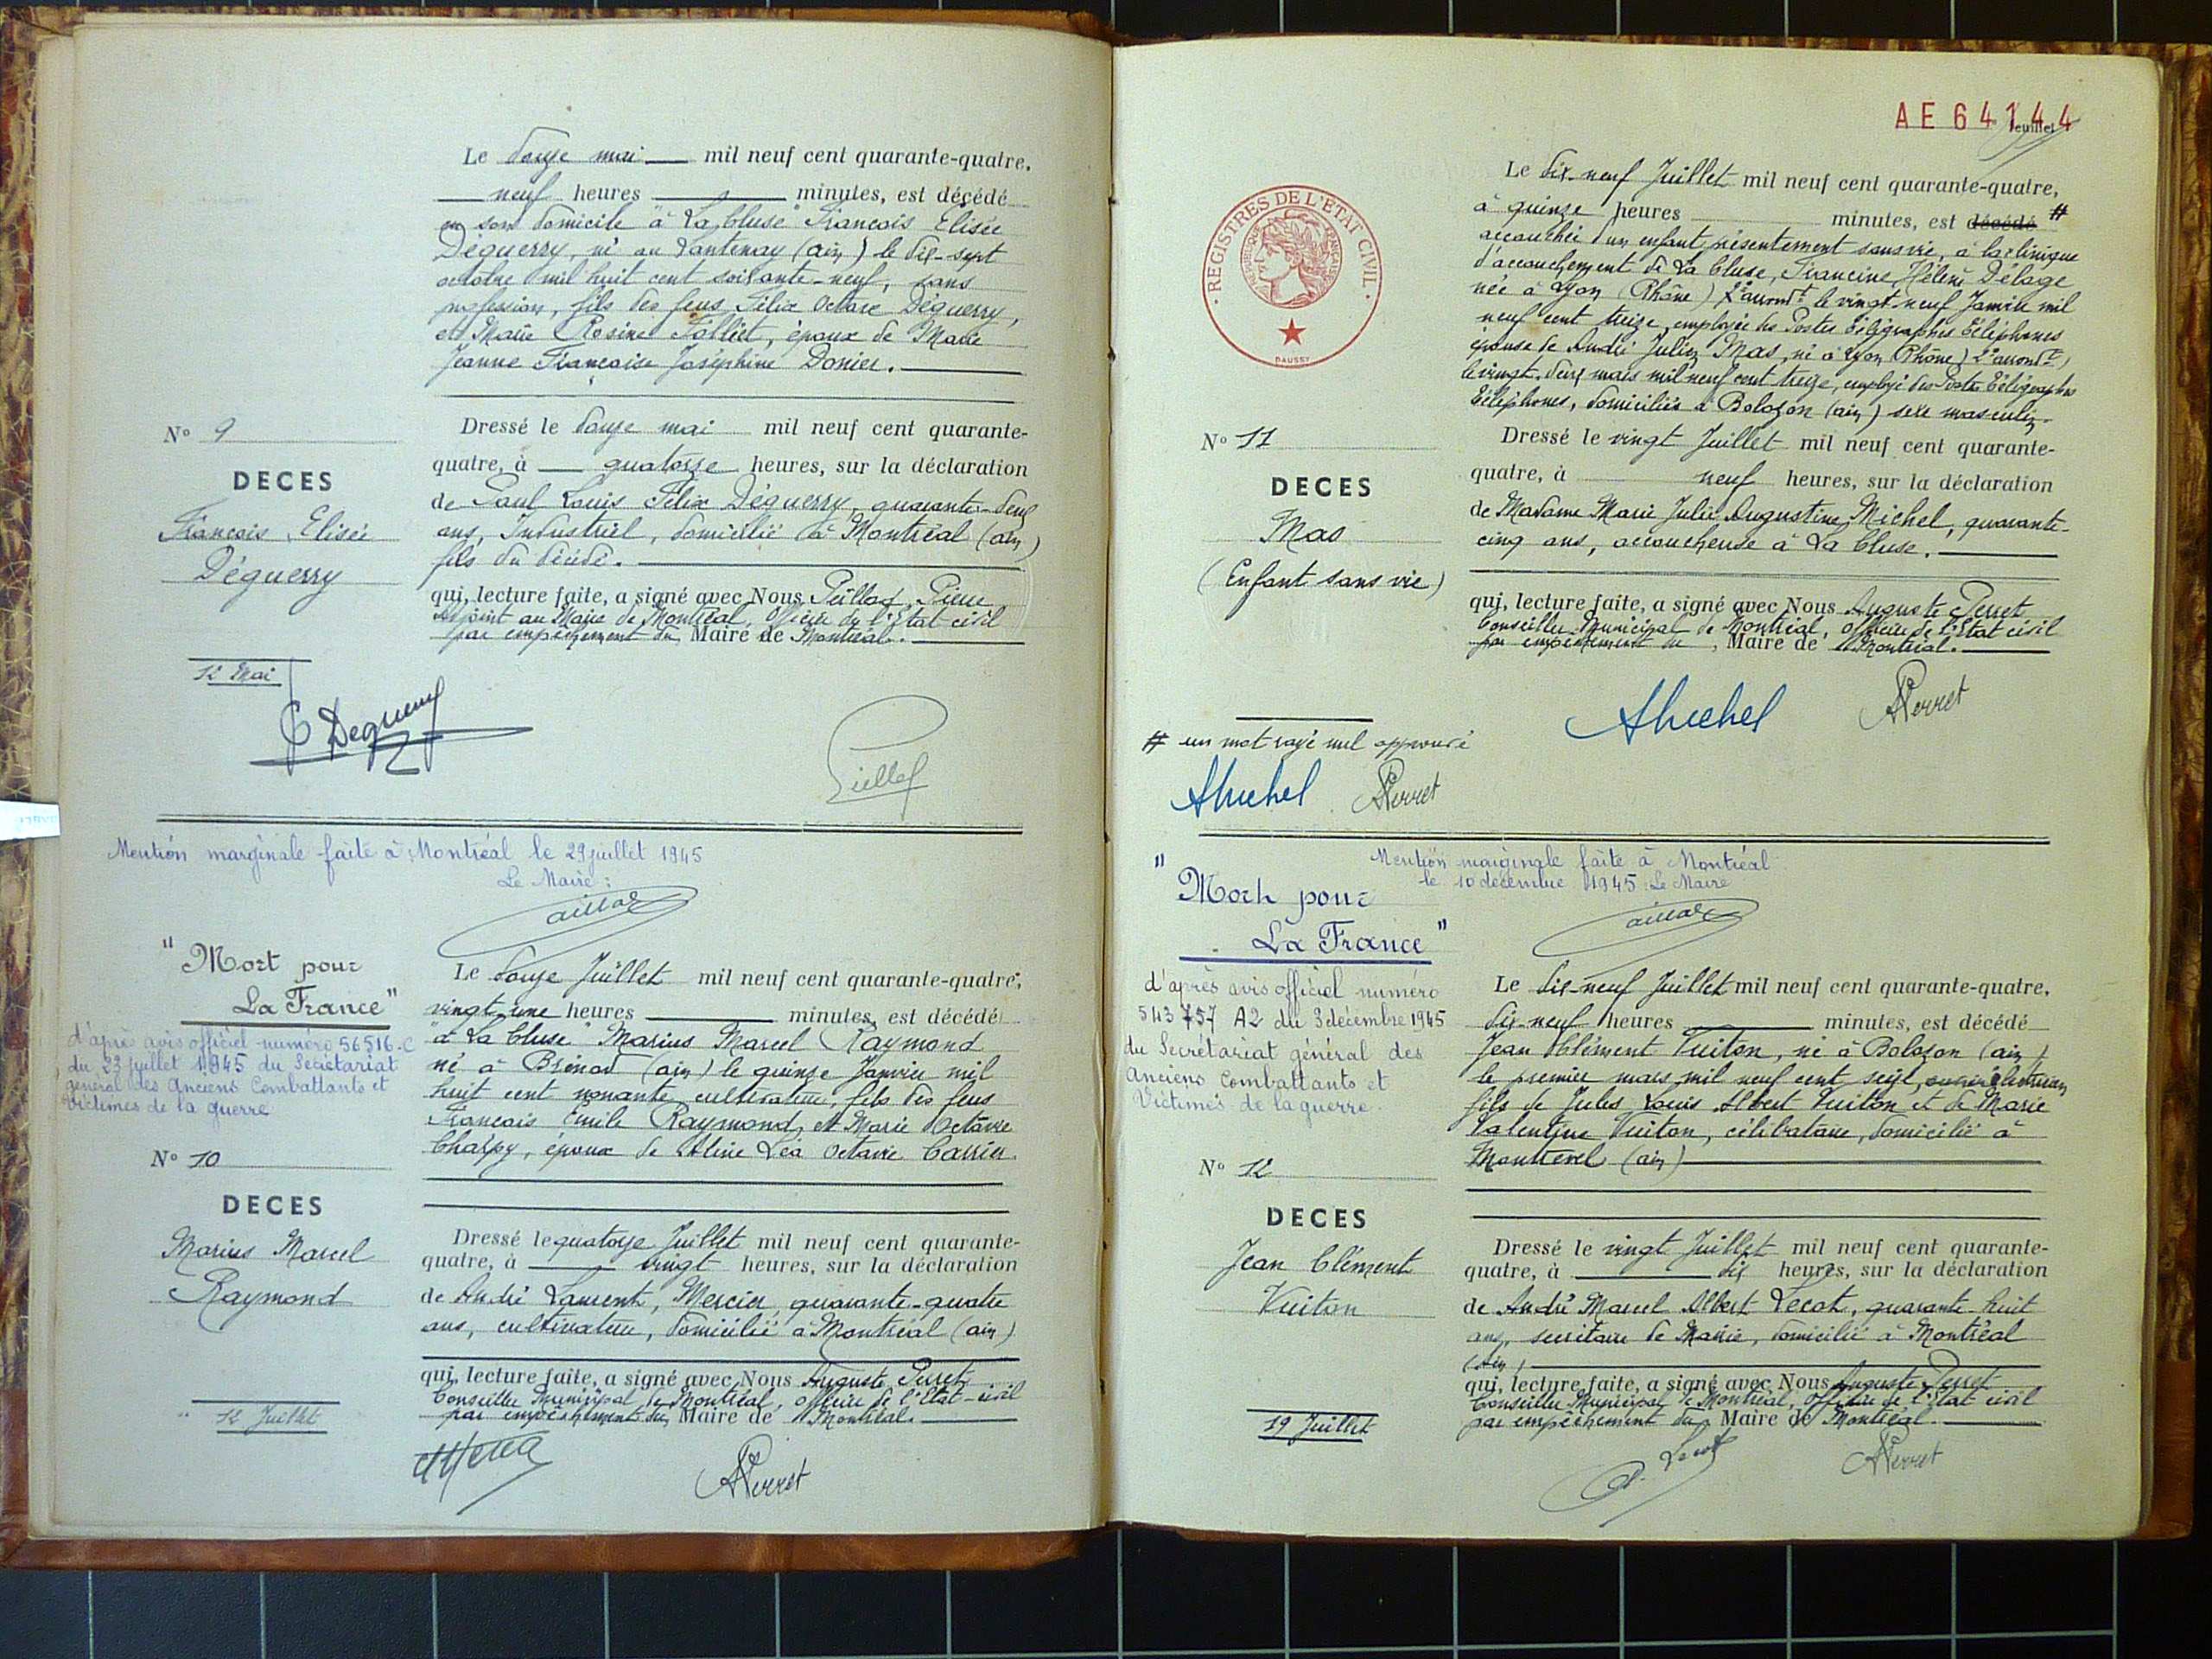 Le douze mai mil neuf cent quarante-quatre,
neuf heures minutes, est décédé
en son domicile "à La Cluse" François Elisée
Déguerry, né au Lantenay (ain) le dix-sept
octobre mil huit cent soixante-neuf, sans
profession, fils des feus Félix Octave Déguerry,
et Marie Rosine Folliet, époux de Marie
Jeanne Françoise Joséphine Donier.
N° 9
DECES
François Elisée
Déguerry
12 Mai
Dressé le douze mai mil neuf cent quarante-
quatre, à quatorze heures, sur la déclaration
de Paul Louis Félix Déguerry, quarante-deux
ans, Industriel, domicilié à Montréal (ain)
fils du décédé.
qui, lecture faite, a signé avec Nous Pierre
Adjoint au Maire de Montréal, Officier de l'Etat civil
par empêchement du Maire de Montréal.
Deguerry
Mention marginale faite à Montréal le 29 juillet 1945
Le Maire :
"Mort pour
La France"
d'après avis officiel numéro 56516.C
du 23 juillet 1945 du Secrétariat
général des Anciens Combattants et
Victimes de la guerre
N° 10
DECES
Marius Marcel
Raymond
12 Juillet
Le douze Juillet mil neuf cent quarante-quatre,
vingt-une heures minutes, est décédé
"à La Cluse" Marius Marcel Raymond
né à Brénod (ain) le quinze Janvier mil
huit cent nonante, cultivateur, fils des feus
François Emile Raymond et Marie Octavie
Charpy, époux de Aline Léa Octavie Carrier.
Dressé le quatorze Juillet mil neuf cent quarante-
quatre, à vingt heures, sur la déclaration
de André Laurent, Mercier, quarante-quatre
ans, cultivateur, domicilié à Montréal (ain)
qui, lecture faite, a signé avec Nous Auguste Perret
Conseiller Municipal de Montréal, officier de l'Etat-civil
par empêchement du Maire de Montréal.
APerret
AE 64144
feuillet
REGISTRES DE L'ETAT CIVIL
REPUBLIQUE FRANÇAISE
DAUSSY
Le dix-neuf Juillet mil neuf cent quarante-quatre,
à quinze heures minutes, est décédé #
accouchée d'un enfant présentement sans vie, à la clinique
d'accouchement de La Cluse, Francine Hélène Délage
née à Lyon (Rhône) 2e arrondt le vingt-neuf Janvier mil
neuf cent treize, employée des Postes Télégraphes Téléphones
épouse de André Julien Mas, né à Lyon (Rhône) 2e arrondt,
le vingt-deux mars mil neuf cent treize, employé des Postes Télégraphes
Téléphones, domiciliés à Bolozon (ain) sexe masculin.
N° 11
DECES
Mas
(Enfant sans vie)
Dressé le vingt Juillet mil neuf cent quarante-
quatre, à neuf heures, sur la déclaration
de Madame Marie Julie Augustine Michel, quarante-
cinq ans, accoucheuse à La Cluse.
qui, lecture faite, a signé avec Nous Auguste Perret
Conseiller Municipal de Montréal, officier de l'Etat civil
par empêchement du, Maire de Montréal.
AMichel APerret
# un mot rayé nul approuvé
AMichel APerret
Mention marginale faite à Montréal
le 10 décembre 1945 : Le Maire
"Mort pour
La France"
d'après avis officiel numéro
543 757 A2 du 3 décembre 1945
du Secrétariat général des
Anciens Combattants et
Victimes de la guerre
N° 12
DECES
Jean Clément
Vuiton
19 Juillet
Le dix-neuf Juillet mil neuf cent quarante-quatre,
dix-neuf heures minutes, est décédé
Jean Clément Vuiton, né à Bolozon (ain)
le premier mars mil neuf cent seize, électricien
fils de Jules Louis Albert Vuiton et de Marie
Valentine Vuiton, célibataire, domicilié à
Montrevel (ain)
Dressé le vingt Juillet mil neuf cent quarante-
quatre, à dix heures, sur la déclaration
de André Marcel Albert Lecot, quarante-huit
ans, secrétaire de Mairie, domicilié à Montréal
(Ain)
qui, lecture faite, a signé avec Nous Auguste Perret
Conseiller Municipal de Montréal, officier de l'Etat civil
par empêchement du Maire de Montréal.
A. Lecot APerret